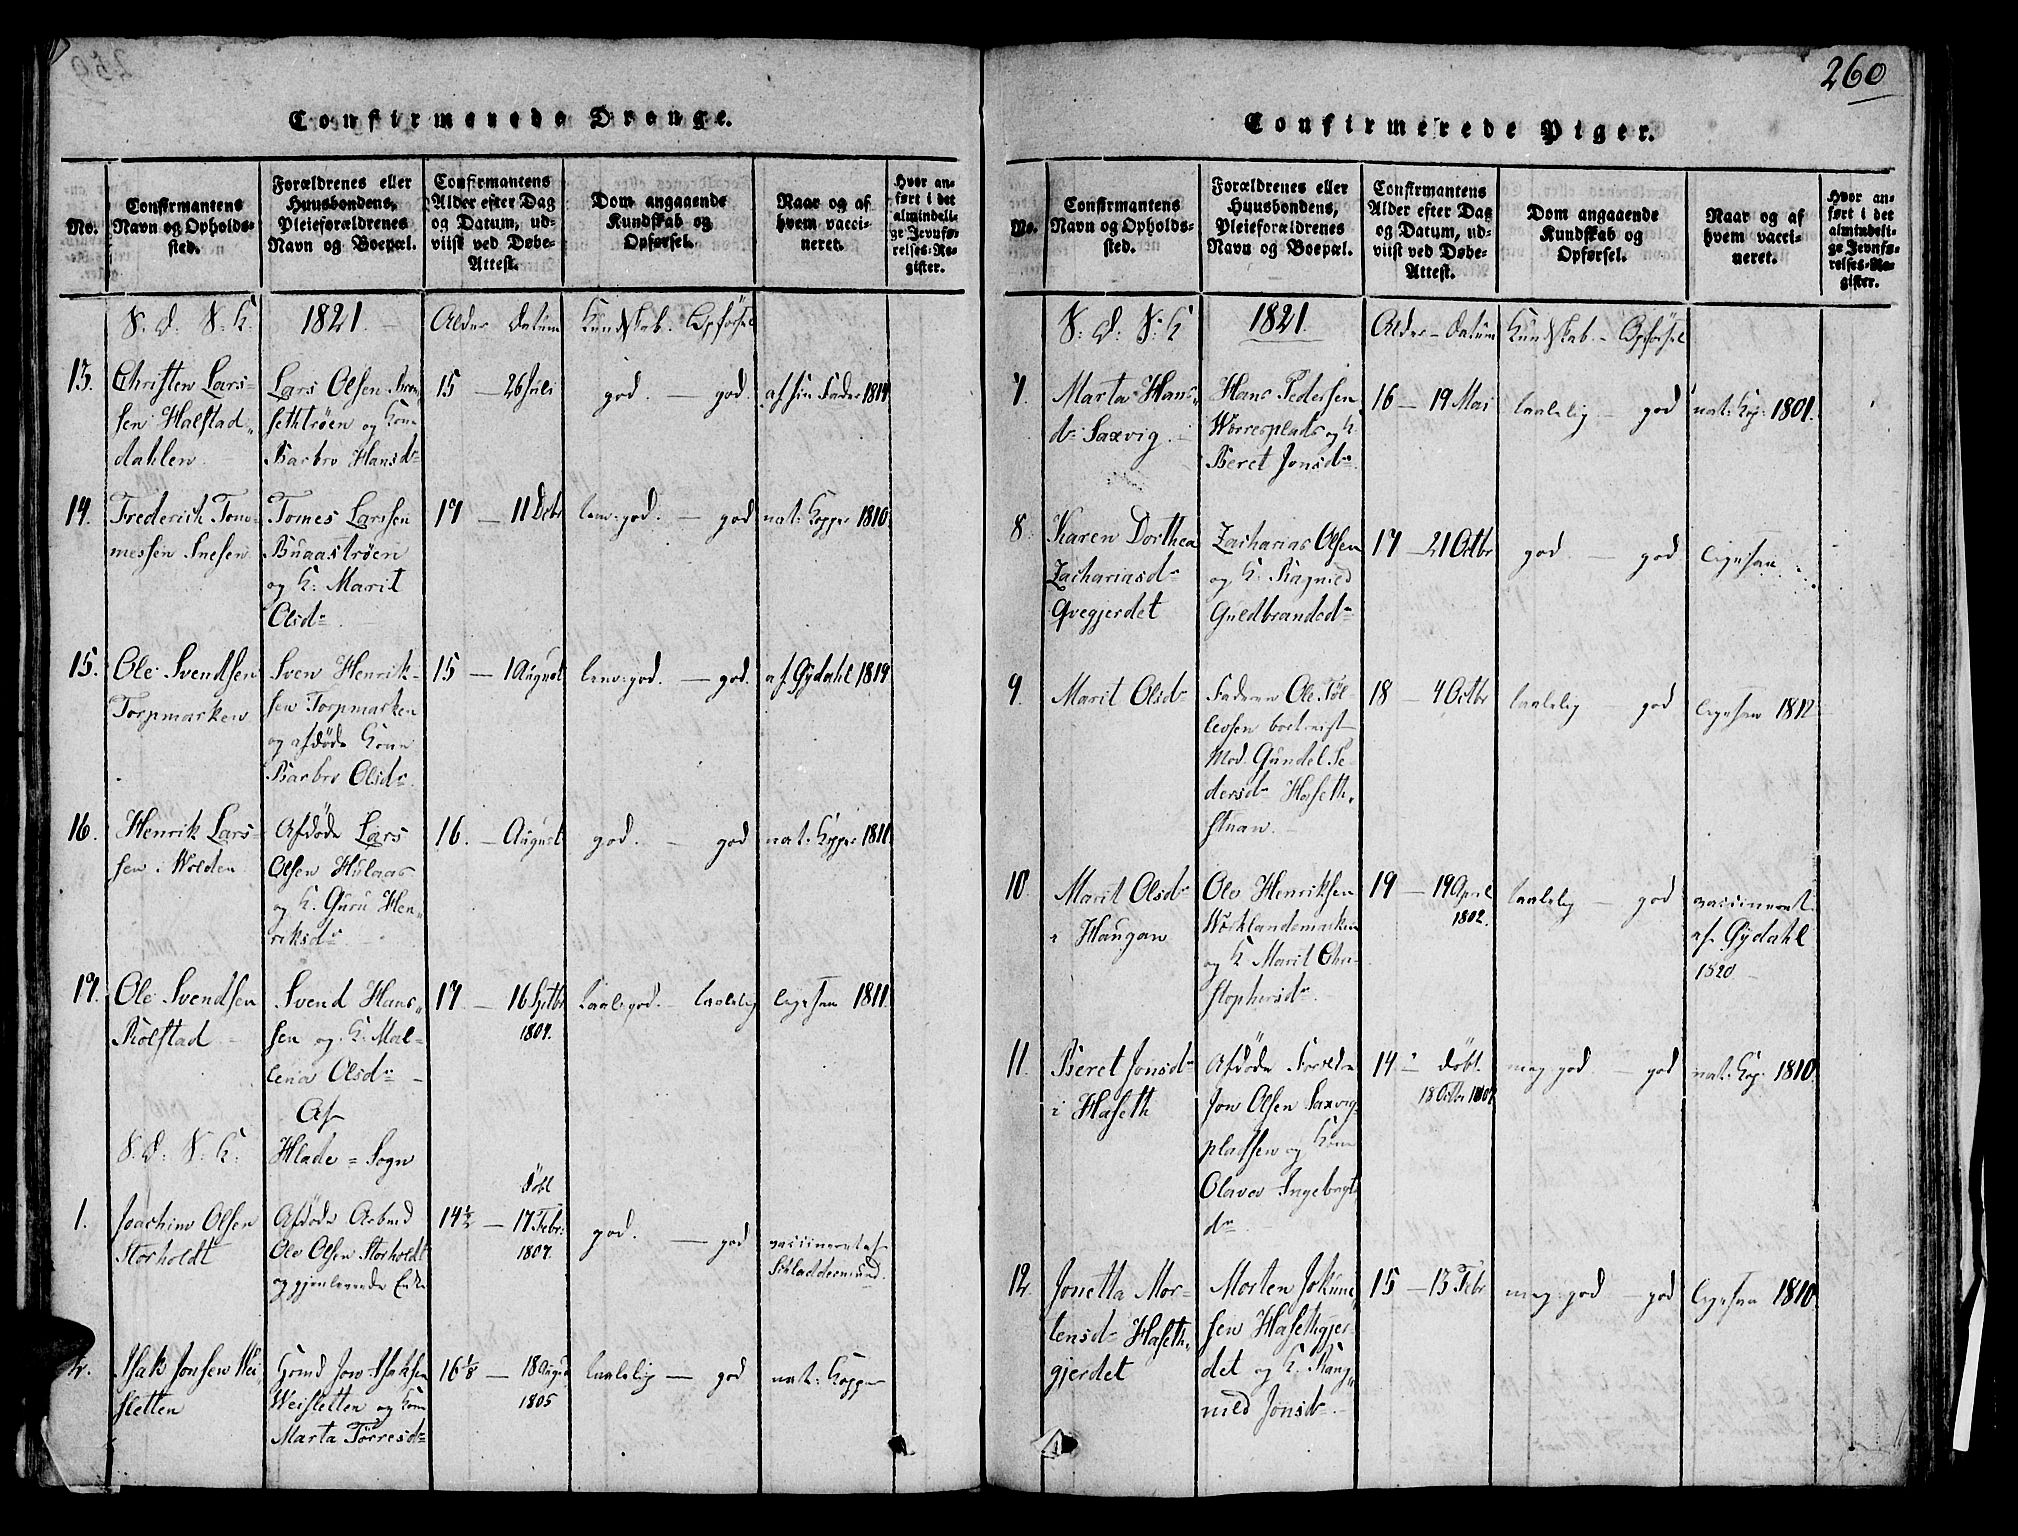 260
Confirmerede Drenge.
No.
Confirmantens
Navn og Opholds-
sted.
Forældrenes eller
Huusbondens,
Pleieforældrenes
Navn og Boepæl.
Confirmantens
Alder efter Dag
og Datum, ud-
viist ved Døbe-
Attest.
Dom angaaende
Kundskab og
Opførsel.
Naar og af
hvem vacci-
neret.
Hvor an-
ført i det
almindeli-
ge Jevnfø-
relses-Re-
gister.
S. D. S. K. 1821. Alder Datum Kundskab. Opførsel
13.
Christen Lars-
sen Halstad
dahlen
Lars Olsen
sethtrøen og Kone
Barbro Hansdr
15 — 26 Juli
god. — god.
af sin Fader 1814.
14.
Frederich Tom-
messen Snesen
Tomes Larssen
Buaastrøen
og K. Marit
Olsdr
17 — 11 Decbr
god. — god
nat. Kopper 1810.
15.
Ole Svendsen
Torpmarken
Sven Henrik-
sen Torpmarken
og afdøde Kone
Barbro Olsdr
15 — 1 August
god. — god.
af Gydahl 1819
16.
Henrik Lars-
sen i Wolden
Afdøde Lars
Olsen Hulaas
og K. Guru Hen-
riksdr
16. — August
god. — god
nat. Kopper 1811.
17.
Ole Svendsen
Rolstad
Svend Hans-
sen og K. Mal-
lena Olsdr
17 — 16 Septbr
1804.
taal. god. — taalelig
ligesaa 1811.
Af
S. D. S. K. Hlade-Sogn
1.
Joachim Olsen
Storholdt
Afdøde Arbmd
Ole Olsen Storholdt
og gjenlevende Enke
14½ — døbt
17 Febr.
1807.
god. — god
vaccineret af
Schladdermund.
2.
Isak Jonsen Wei-
sletten
Husmd Jon Isaksen
Weisletten og Kone
Marta Torresdr
16⅛ — 18 August
1805
taalelig — god
nat. Kopper
Confirmerede Piger.
No.
Confirmantens
Navn og Opholds-
sted.
Forældrenes eller
Huusbondens,
Pleieforældrenes
Navn og Boepæl.
Confirmantens
Alder efter Dag
og Datum, ud-
viist ved Døbe-
Attest.
Dom angaaende
Kundskab og
Opførsel.
Naar og af
hvem vacci-
neret.
Hvor an-
ført i det
almindeli-
ge Jevnfø-
relses-Re-
gister.
S. D. S. K 1821. Alder — Datum Kundskab. — Opførsel
7.
Marta Hans-
dr Saxvig
Hans Pedersen
Worresplads og K.
Beret Jonsdr
16 — 19 Mai
taalelig — god
nat. Kop. 1801.
8.
Karen Dorthea
Zachariasdr
Qvegjerdet
Zacharias Olsen
og K. Ragnild
Guldbrandsdr
17 — 21 Octbr
god — god
ligesaa
9.
Marit Olsdr
Faderen Ole Tol
levsen bortreist
Mod. Gundel Pe-
dersdr Haseth-
stuan.
18 — 4 Octbr
taalelig — god
ligesaa 1812
10.
Marit Olsdr
i Haugan
Ole Henriksen
Wæklandsmarken
og K Marit Chri-
stophersdr
19 — 19 April
1802.
taalelig — god
vaccineret
af Gydahl
1820
11.
Beret Jonsdr
i Haseth
Afdøde Foreldre
Jon Olsen Saxvig-
pladsen og Kone
Olava Ingebrigts
dr
14 — døbt
18 Octbr 1807
meg. god — god
nat. Kop. 1810.
12.
Jonetta Mor-
tensdr Haseth-
gjerdet
Morten Jokum-
sen Hasethgjer-
det og K. Rang-
nild Jonsdr
15 — 13 Febr
meg. god — god
ligesaa 1810.